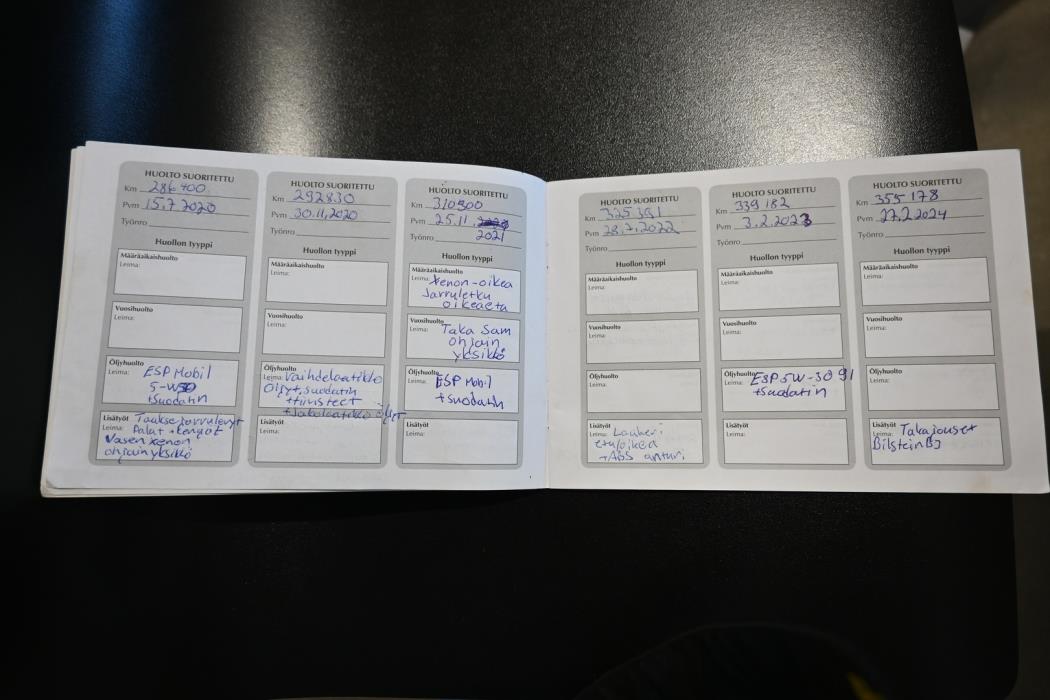 HUOLTO SUORITETTU
Km 286400
Pvm 15.7 2020
Työnro
Huollon tyyppi
Määräaikaishuolto
Leima:
Vuosihuolto
Leima:
Öljyhuolto
Leima: ESP Mobil
5-W30
+Suodatin
Lisätyöt Taakse jarrulevyt
Leima: Palat + kengät
Vasen xenon
ohjainyksikkö
HUOLTO SUORITETTU
Km 292830
Pvm 30.11,2020
Työnro
Huollon tyyppi
Määräaikaishuolto
Leima:
Vuosihuolto
Leima:
Öljyhuolto
Leima: Vaihdelaatikko
Öljyt, suodatin
+tiivisteet
+Jakolaatikko öljyt
Lisätyöt
Leima:
HUOLTO SUORITETTU
Km 310500
Pvm 25.11.
2021
Työnro
Huollon tyyppi
Määräaikaishuolto
Leima: Xenon-oikea
Jarruletku
oikeaeta
Vuosihuolto
Leima: Taka Sam
ohjain
yksikkö
Öljyhuolto
Leima: ESP Mobil
+suodatin
Lisätyöt
Leima:
HUOLTO SUORITETTU
Km 325391
Pvm 28.7.2022
Työnro
Huollon tyyppi
Määräaikaishuolto
Leima:
Vuosihuolto
Leima:
Öljyhuolto
Leima:
Lisätyöt
Leima: Laakeri
etu/oikea
+ABS anturi
HUOLTO SUORITETTU
Km 339182
Pvm 3.2.2023
Työnro
Huollon tyyppi
Määräaikaishuolto
Leima:
Vuosihuolto
Leima:
Öljyhuolto ESP 5W-30 9l
Leima: +suodatin
Lisätyöt
Leima:
HUOLTO SUORITETTU
Km 355178
Pvm 27.2.2024
Työnro
Huollon tyyppi
Määräaikaishuolto
Leima:
Vuosihuolto
Leima:
Öljyhuolto
Leima:
Lisätyöt Takajouset
Bilstein B3